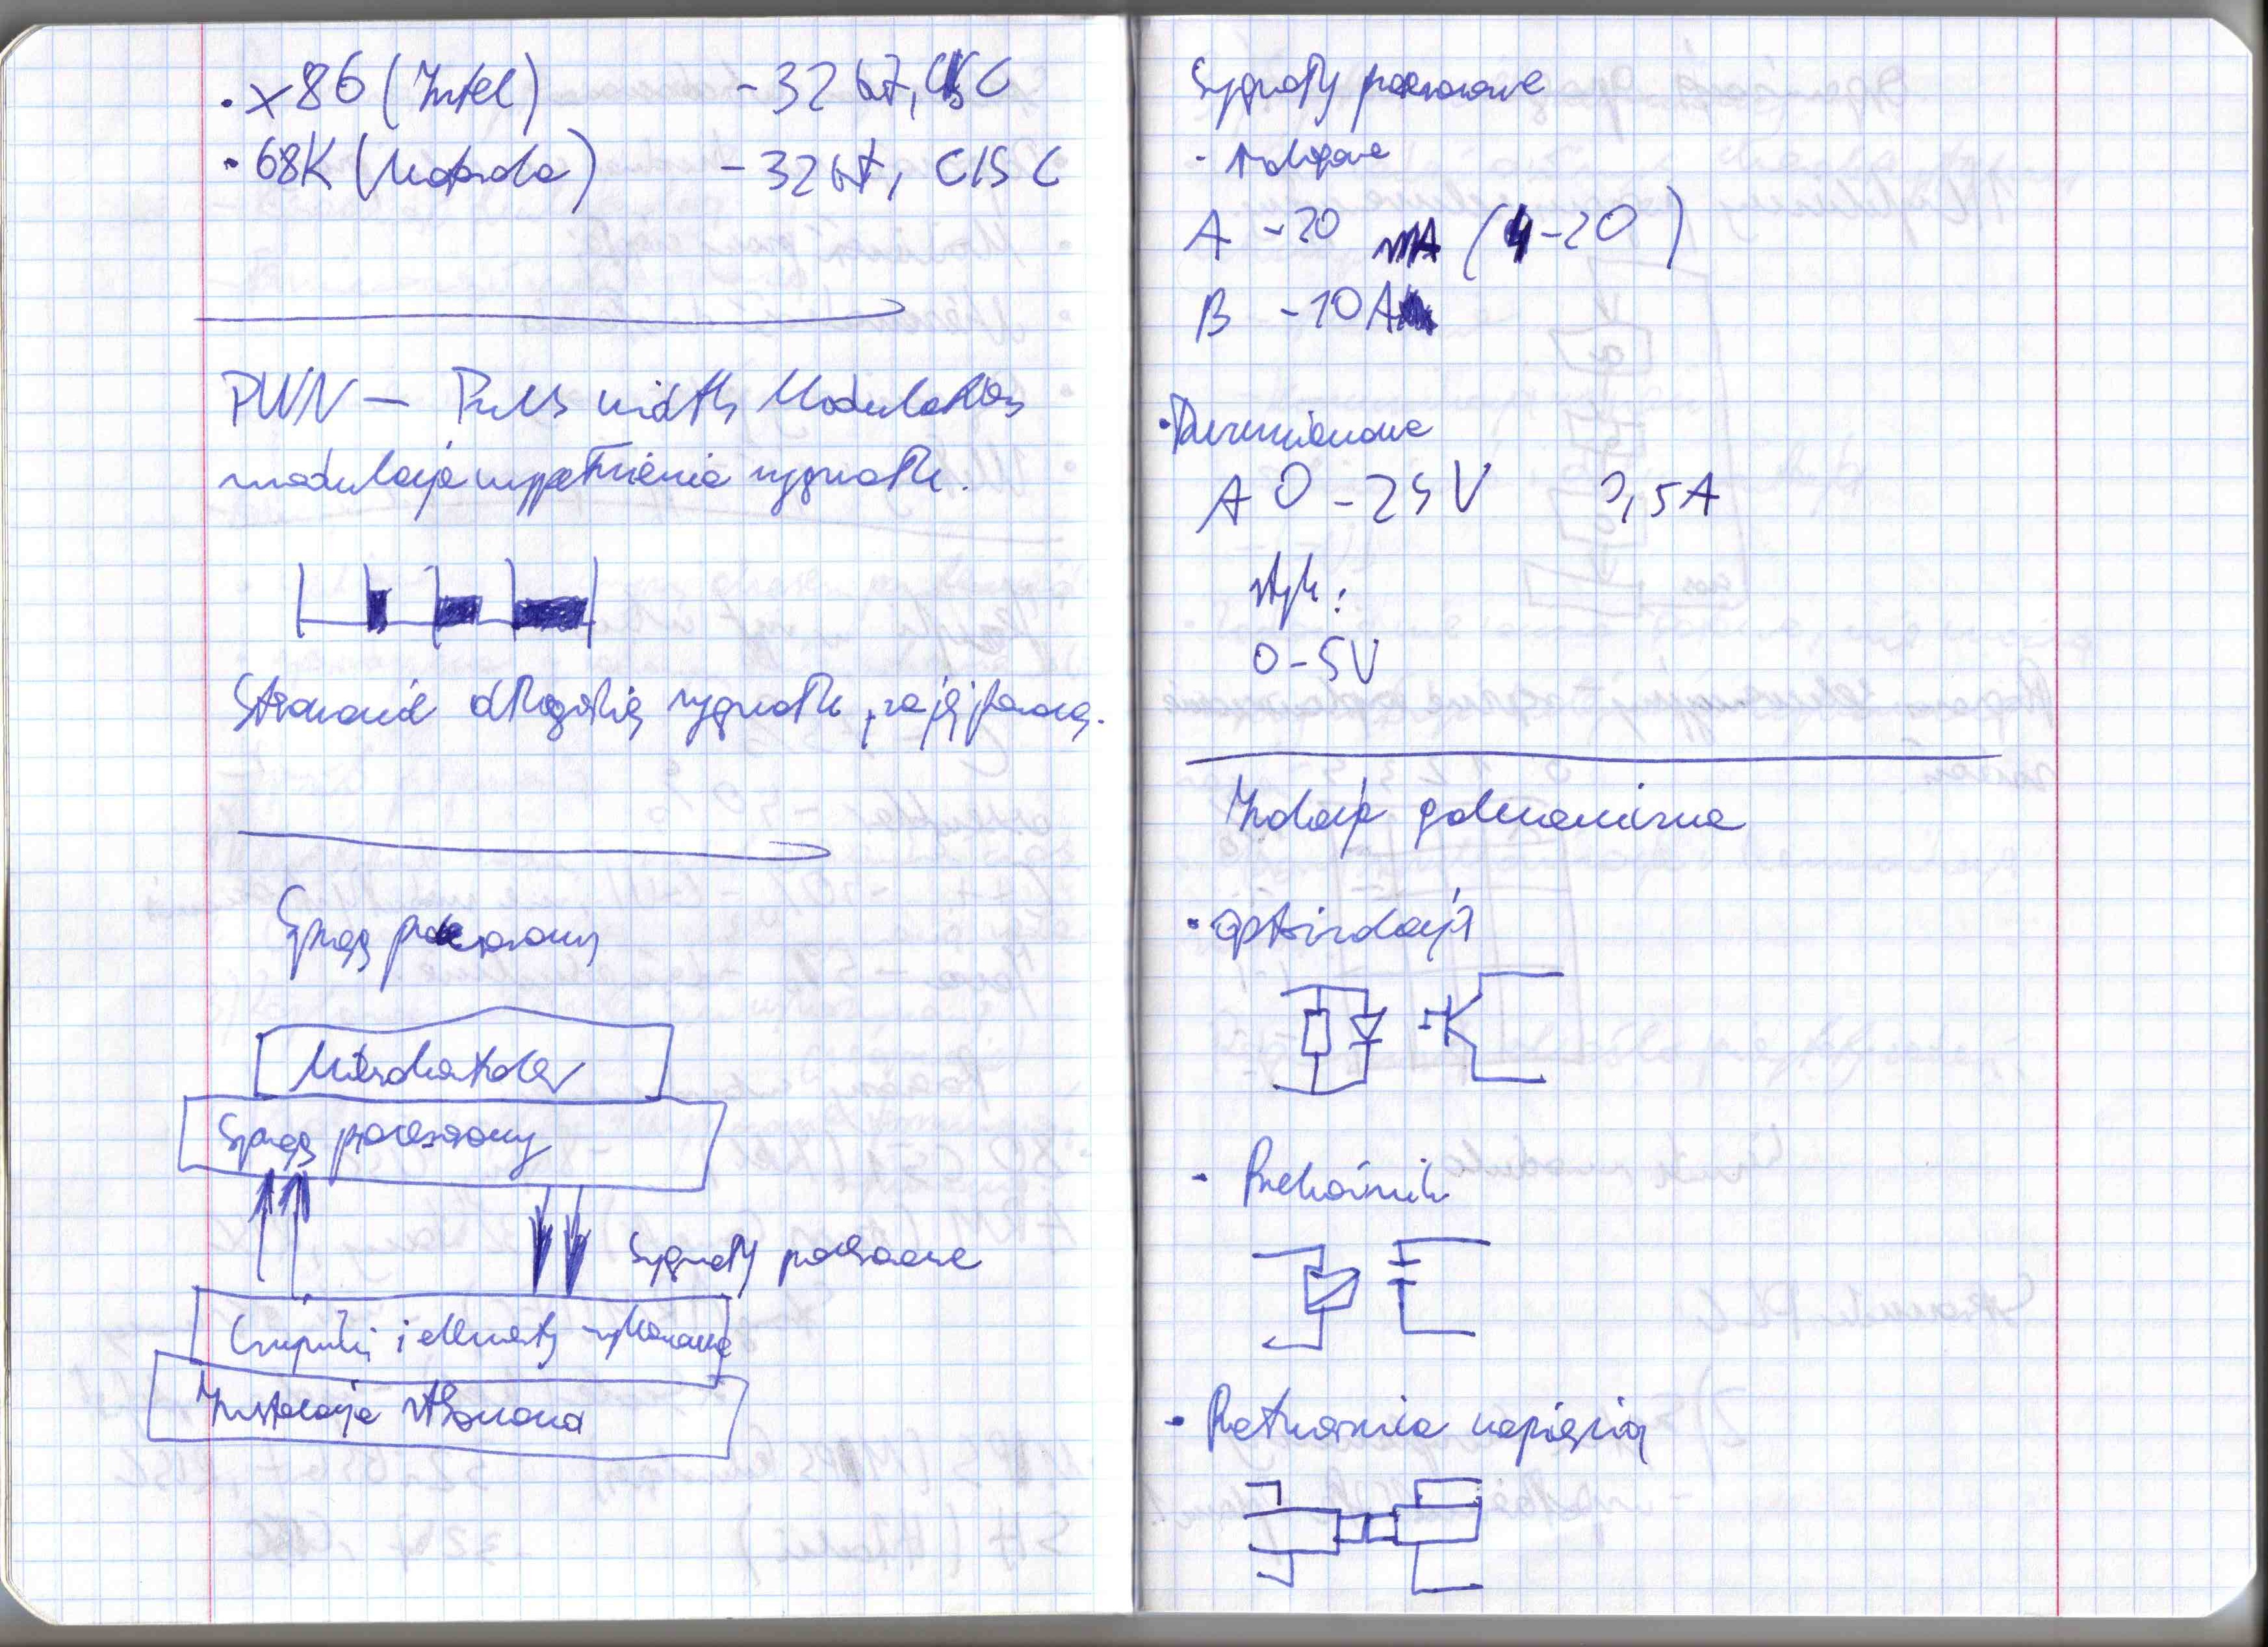 • x86 (Intel) - 32 bit, CISC
• 68K (Motorola) - 32 bit, CISC
PWN — Puls width Modulation
modulacja wypełnienia sygnału.
Sterowanie długością sygnału,
Spręg procesowy
Mikrokontroler
Spręg procesowy
Sygnały procesowe
Czujniki i elementy wykonawcze
Instalacja sterowana
Sygnały procesowe
- Analogowe
A - 20 mA (4-20)
B - 10 A
A 0 - 24 V 0,5A
styk:
0 - 5V
Izolacja galwaniczna
• optoizolacja
• Przekaźnik
• Przetwornica napięcia